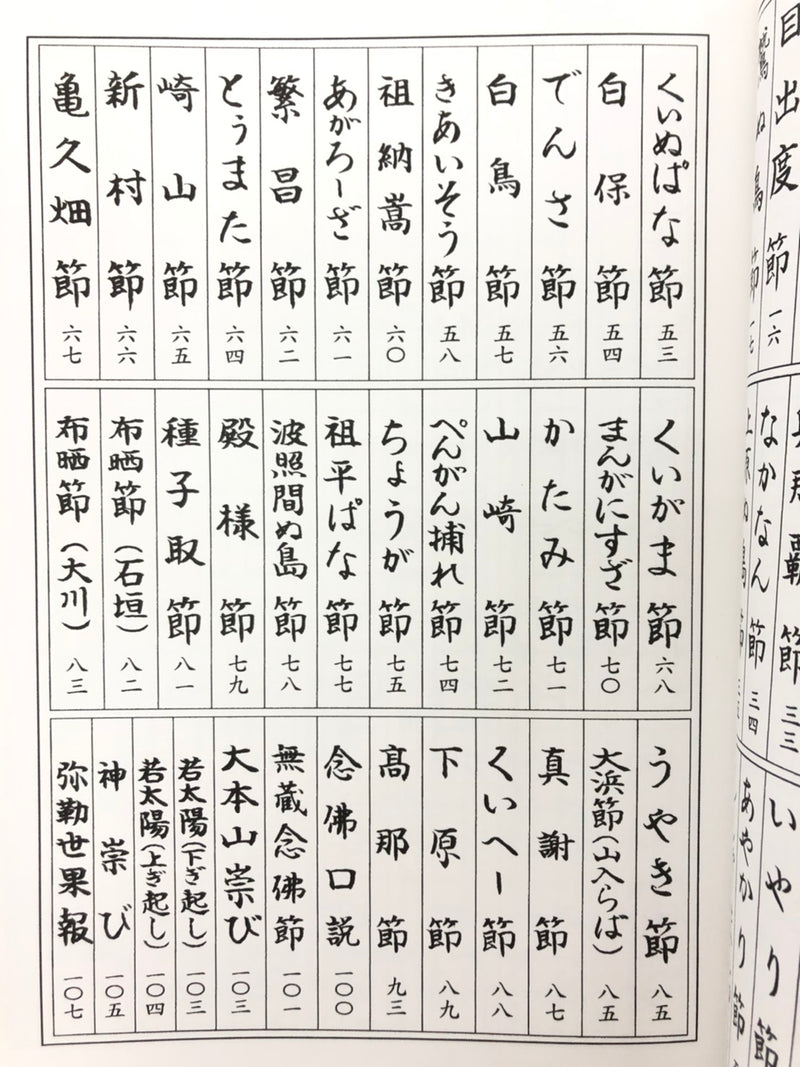 目出度節 一六
鷲ぬ鳥節 一七
真那覇節 三三
なかなん節 三四
いやり節
あやかり節
くいぬぱな節 五三
白保節 五四
でんさ節 五六
白鳥節 五七
きあいそう節 五八
祖納嵩節 六〇
あがろーざ節 六一
繁昌節 六二
とぅまた節 六四
崎山節 六五
新村節 六六
亀久畑節 六七
くいがま節 六八
まんがにすざ節 七〇
かたみ節 七一
山崎節 七二
ぺんがん捕れ節 七四
ちょうが節 七五
祖平ぱな節 七七
波照間ぬ島節 七八
殿様節 七九
種子取節 八一
布晒節(石垣) 八二
布晒節(大川) 八三
うやき節 八五
大浜節(山入らば) 八五
真謝節 八七
くいへー節 八八
下原節 八九
高那節 九三
念佛口説 一〇〇
無蔵念佛節 一〇一
大本山崇び 一〇三
若太陽(下ぎ起し) 一〇三
若太陽(上ぎ起し) 一〇四
神崇び 一〇五
弥勒世果報 一〇七